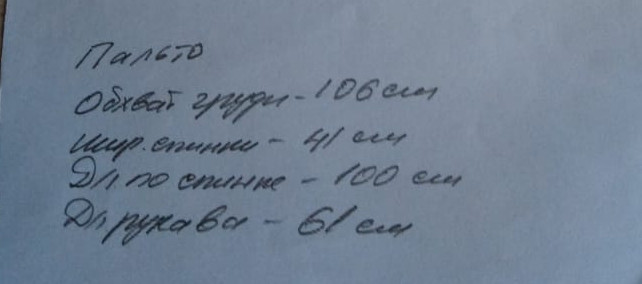 Пальто
Обхват груди - 106 см
шир. спинки - 41 см
Дл. по спинке - 100 см
Дл рукава - 61 см